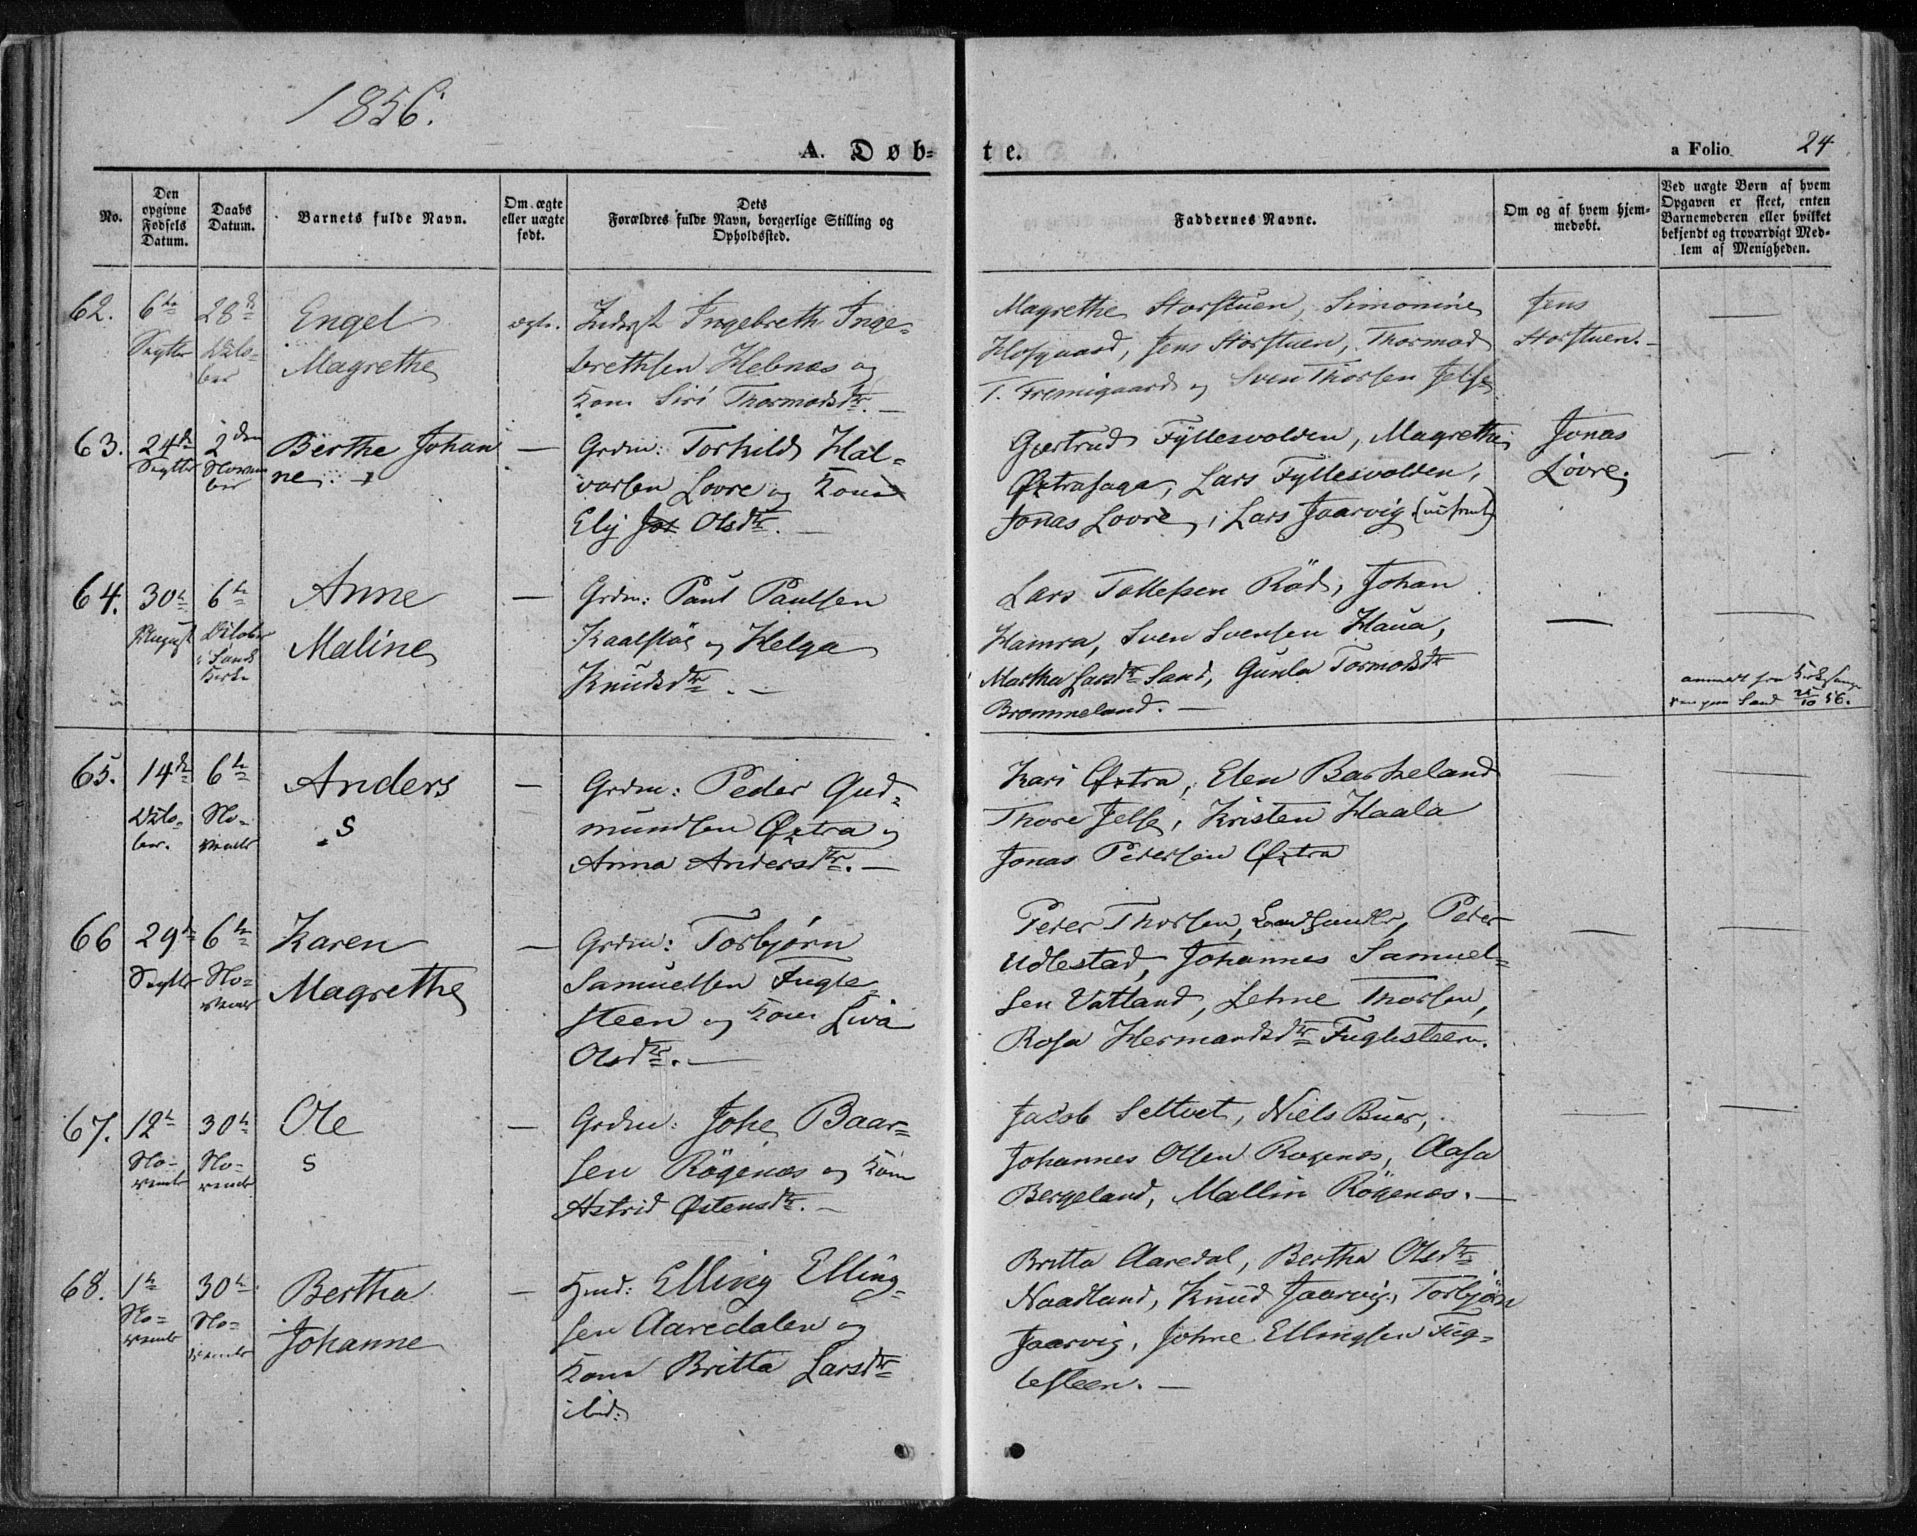 1856.
A. Døb-
te.
a Folio 24
No.
Den opgivne Fødsels Datum.
Daabs Datum.
Barnets fulde Navn.
Om ægte eller uægte født.
Dets Forældres fulde Navn, borgerlige Stilling og Opholdssted.
Faddernes Navne.
Om og af hvem hjemmedøbt.
Ved uægte Børn af hvem Opgaven er skeet, enten Barnemoderen eller hvilket bekjendt og troværdigt Medlem af Menigheden.
62. 6te Septbr 28de Oktober
Engel
Magrethe
ægte.
Inderst Ingebreth Inge-
brethsen Hebnæs og
Kone Siri Thormodsdtr. —
Magrethe Storstuen, Simonine
Hofgaard, Jens Storstuen, Thormod
T. Fremigaard og Sven Thorsen Jelse
Jens
Storstuen. —
63. 24de Septbr 2den November
Berthe Johan
ne.
—
Grdm: Torkild Hal-
vorsen Lovre og Kone
Elij Joh Olsdtr. —
Gjertrud Fyllesvolden, Magrethe
Øxtrasaga, Lars Fyllesvolden,
Jonas Lovre, Lars Jaarvig
Jonas
Lovre.
64. 30te August 6te Oktober i Sands Kirke
Anne
Maline
—
Grdm: Paul Paulsen
Kaalstøe og Helga
Knudsdtr. —
Lars Tollefsen Röd, Johan
Hamra, Sven Svensen Haua,
Martha Larsdtr Sand, Gunla Tormodsdtr
Brommeland. —
Sand 21/10 56.
65. 14de Oktober. 6te November
Anders
s
—
Grdm: Peder Gud-
mundsen Øxtra og
Anna Andersdtr. —
Kari Øxtra, Elen Barkeland
Thore Jelse, Kristen Haala
Jonas Pedersen Øxtra
66 29de Septbr 6te November
Karen
Magrethe
—
Grdm: Torbjørn
Samuelsen Fugle-
steen og Kone Liva
Olsdtr. —
Peder Thorsen, Landhandler, Peder
Udlestad, Johannes Samuel-
sen Vatland, Lehne Thorsen,
Rosa Hermandsdtr Fuglesteen.
67. 12te November 30te November
Ole
s
—
Grdm: Johe Baar-
sen Rögenæs og Kone
Astrid Østensdtr. —
Jacob Seltvet, Niels Buer,
Johannes Olsen Rogenæs, Aasa
Bergeland, Mallin Rögenæs. —
68. 1te November 30te November
Bertha
Johanne
—
Hmd: Elling Elling-
sen Aaredalen og
Kone Britta Larsdtr
ibid:
Britta Aaredal, Bertha Olsdtr
Naadland, Knud Jaarvig, Torbjörn
Jaarvig, Johne Ellingsen Fug-
lesteen. —